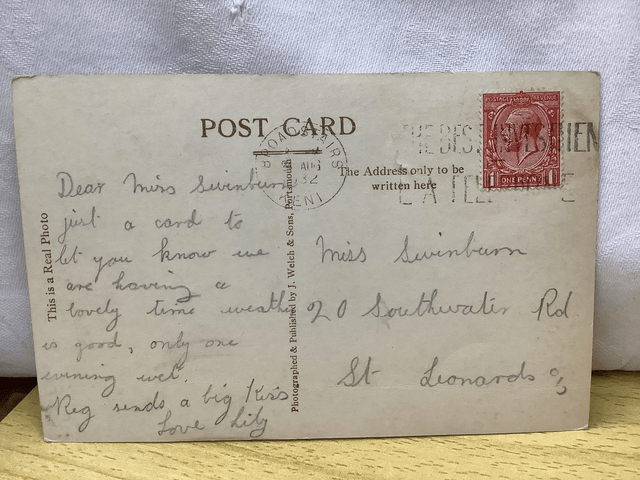 POST CARD
BROADSTAIRS
AUG
32
KENT
THE BEST INVESTMEN
POSTAGE REVENUE
ONE PENNY
1 1
The Address only to be
written here
This is a Real Photo
Photographed & Published by J. Welch & Sons, Portsmouth
Dear Miss Swinburn
just a card to
let you know we
are having a
lovely time weather
is good, only one
evening wet.
Reg sends a big Kiss
Love Lily
Miss Swinburn
20 Southwater Rd
St Leonards